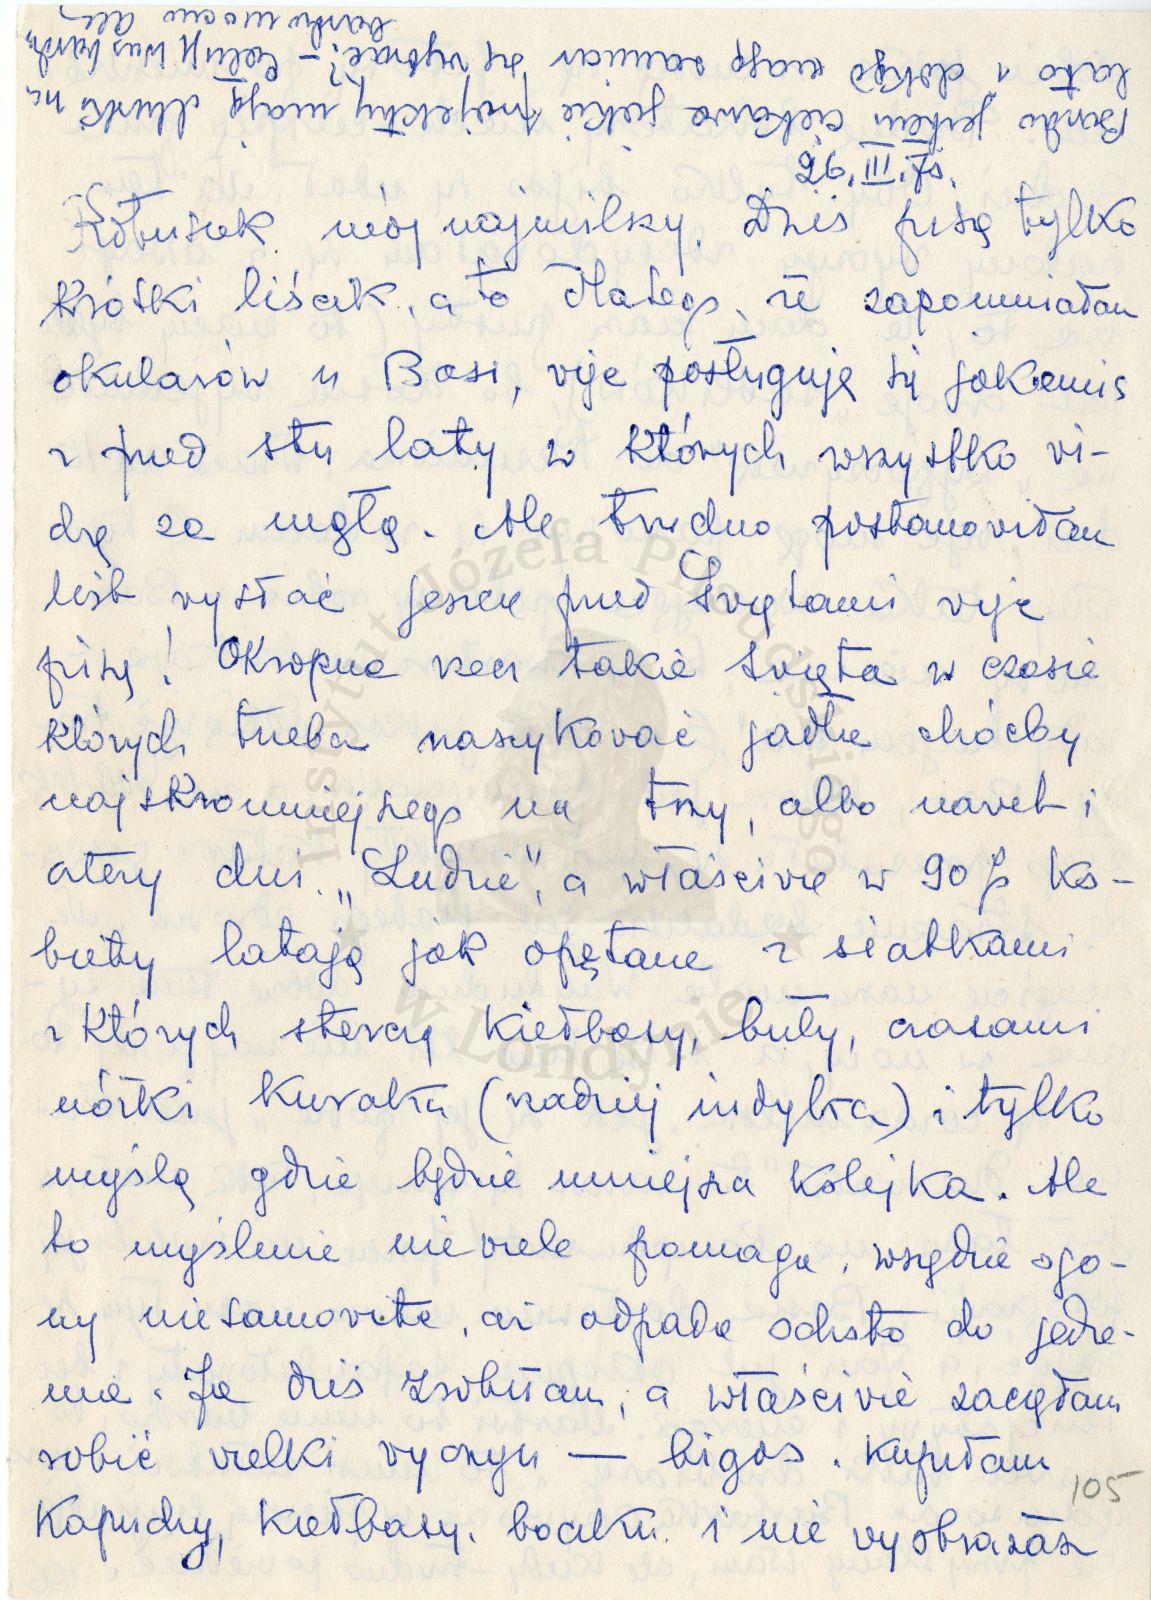 Bardzo jestem ciekawa jakie projekty mają Murki na
lato i dokąd mają zamiar się wybrać? – Całuję Was bardzo,
bardzo mocno Ala
26.III.75.
Kotusiek mój najmilszy. Dziś piszę tylko
krótki liścik, a to dlatego, że zapomniałam
okularów u Basi, więc posługuję się jakiemiś
z przed stu laty w których wszystko wi-
dzę za mgłą. Ale trudno postanowiłam
list wysłać jeszcze przed Świętami więc
piszę! Okropna rzecz takie święta w czasie
których trzeba naszykować jadła choćby
najskromniejszego na trzy, albo nawet i
cztery dni. „Ludzie", a właściwie w 90% ko-
biety latają jak opętane z siatkami
z których sterczą kiełbasy, buły, czasami
nóżki kurczaka (rzadziej indyka) i tylko
myślą gdzie będzie mniejsza kolejka. Ale
to myślenie niewiele pomaga, wszędzie ogo-
ny niesamowite, aż odpada ochota do jedze-
nia. Ja dziś zrobiłam, a właściwie zaczęłam
robić wielki wyczyn — bigos. Kupiłam
kapusty, kiełbasy, boczku i nie wyobrażasz
105
Instytut Józefa Piłsudskiego
w Londynie